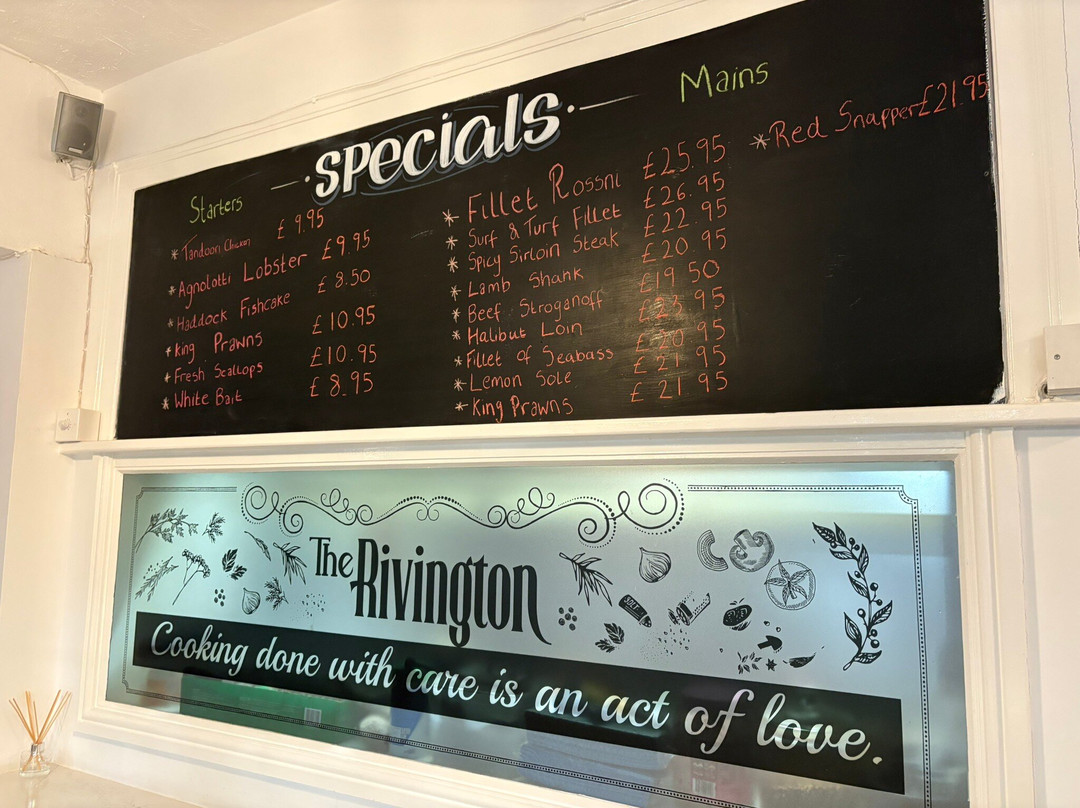 Specials
Starters
* Tandoori Chicken £9.95
* Agnolotti Lobster £9.95
* Haddock Fishcake £8.50
* King Prawns £10.95
* Fresh Scallops £10.95
* White Bait £8.95
Mains
* Fillet Rossni £25.95
* Surf & Turf Fillet £26.95
* Spicy Sirloin Steak £22.95
* Lamb Shank £20.95
* Beef Stroganoff £19.50
* Halibut Loin £23.95
* Fillet of Seabass £20.95
* Lemon Sole £21.95
* King Prawns £21.95
* Red Snapper £21.95
The Rivington
Cooking done with care is an act of love.